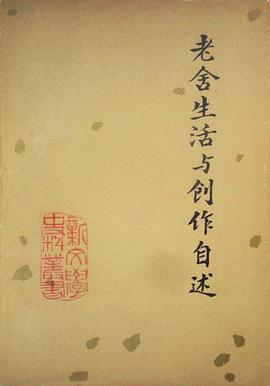 老舍生活与创作自述
新文學
史料叢書